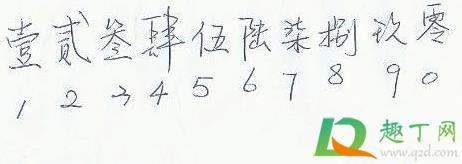 壹贰叁肆伍陆柒捌玖零
1 2 3 4 5 6 7 8 9 0
趣丁网
www.q2d.com